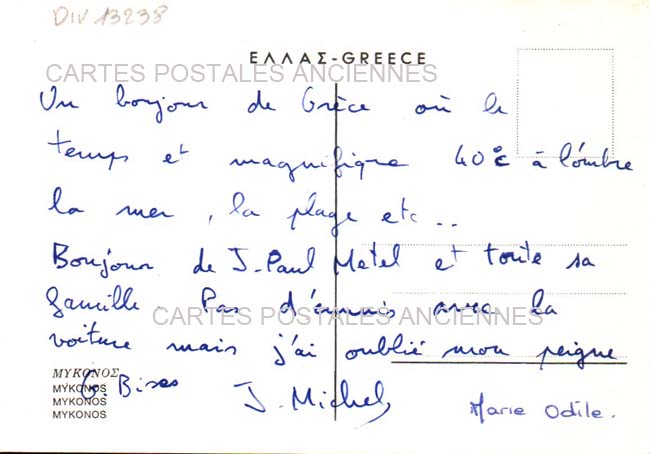 DIV 13238
ΕΛΛΑΣ-GREECE
CARTES POSTALES ANCIENNES
Un bonjour de Grèce où le
temps et magnifique 40°c à l'ombre
la mer, la plage etc...
Bonjour de J-Paul Metel et toute sa
famille. Pas d'ennuis avec la
CARTES POSTALES ANCIENNES
voiture mais j'ai oublié mon peigne
ΜΥΚΟΝΟΣ
G. Bises J. Michel Marie Odile.
MYKONOS
MYKONOS
MYKONOS